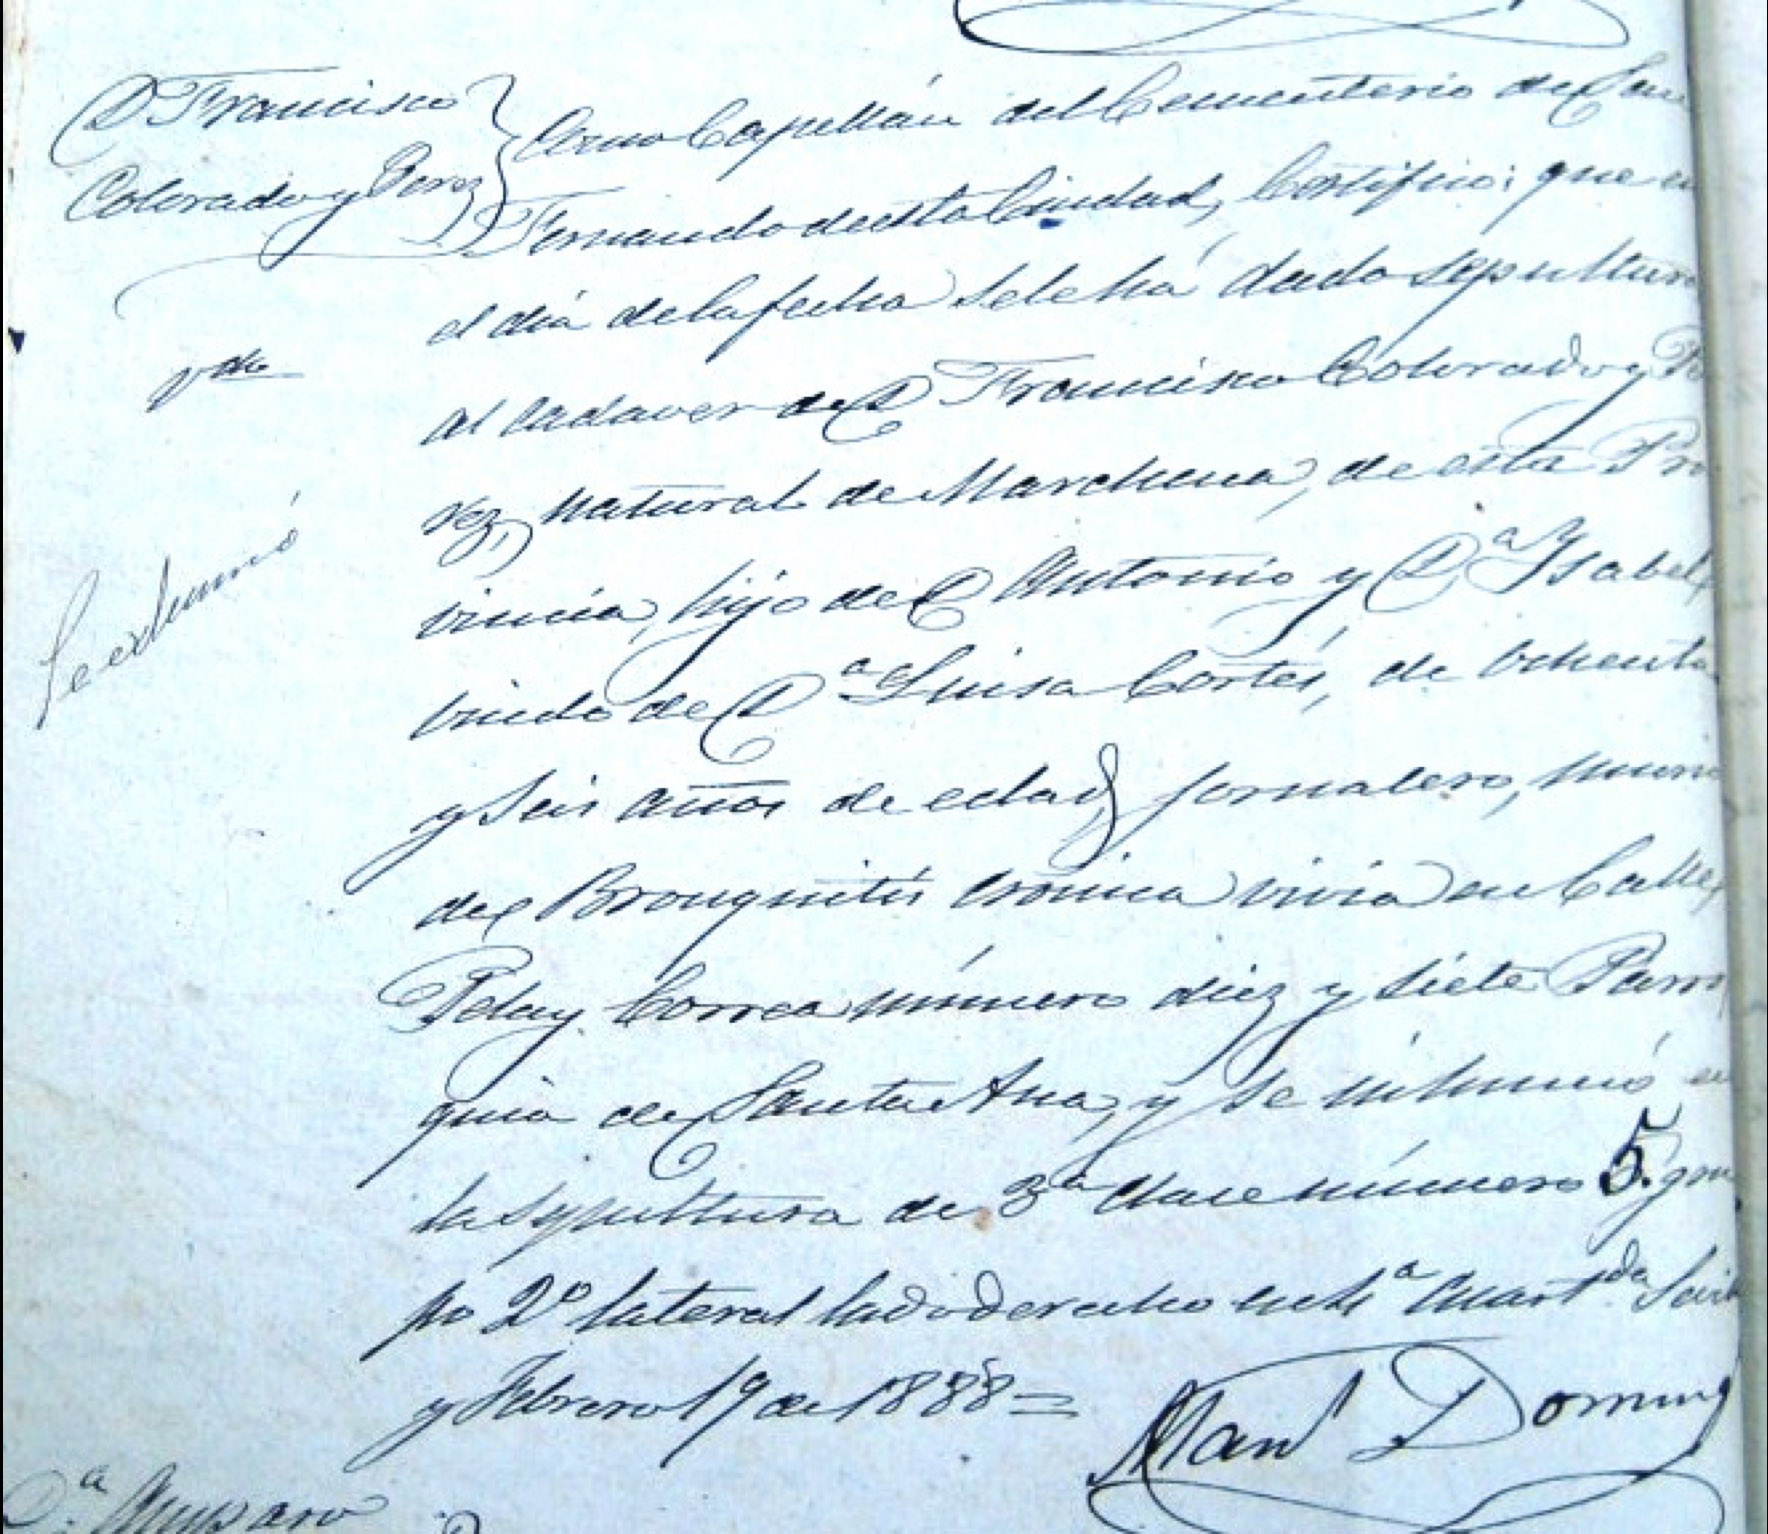 D Francisco
Colorado y Perez
vdo
Se exhumó
Como Capellán del Cementerio de San
Fernando de esta Ciudad, Certifico: que en
el dia de la fecha se le há dado sepultura
al cadaver de D Francisco Colorado y Pe
rez, natural de Marchena, de esta Pro
vincia, hijo de D Antonio y Dª Ysabel
viudo de Dª Luisa Cortés, de ochenta
y seis años de edad, jornalero, murió
de Bronquitis crónica vivia en Calle
Pelay Correa número diez y siete Parro
quia de Santa Ana, y se inhumó en
la sepultura de 3ª clase número 5. gru
po 2º lateral lado derecho en la cuartda Sevilla
y Febrero 19 de 1888=
Manl Doming
Dª Amparo